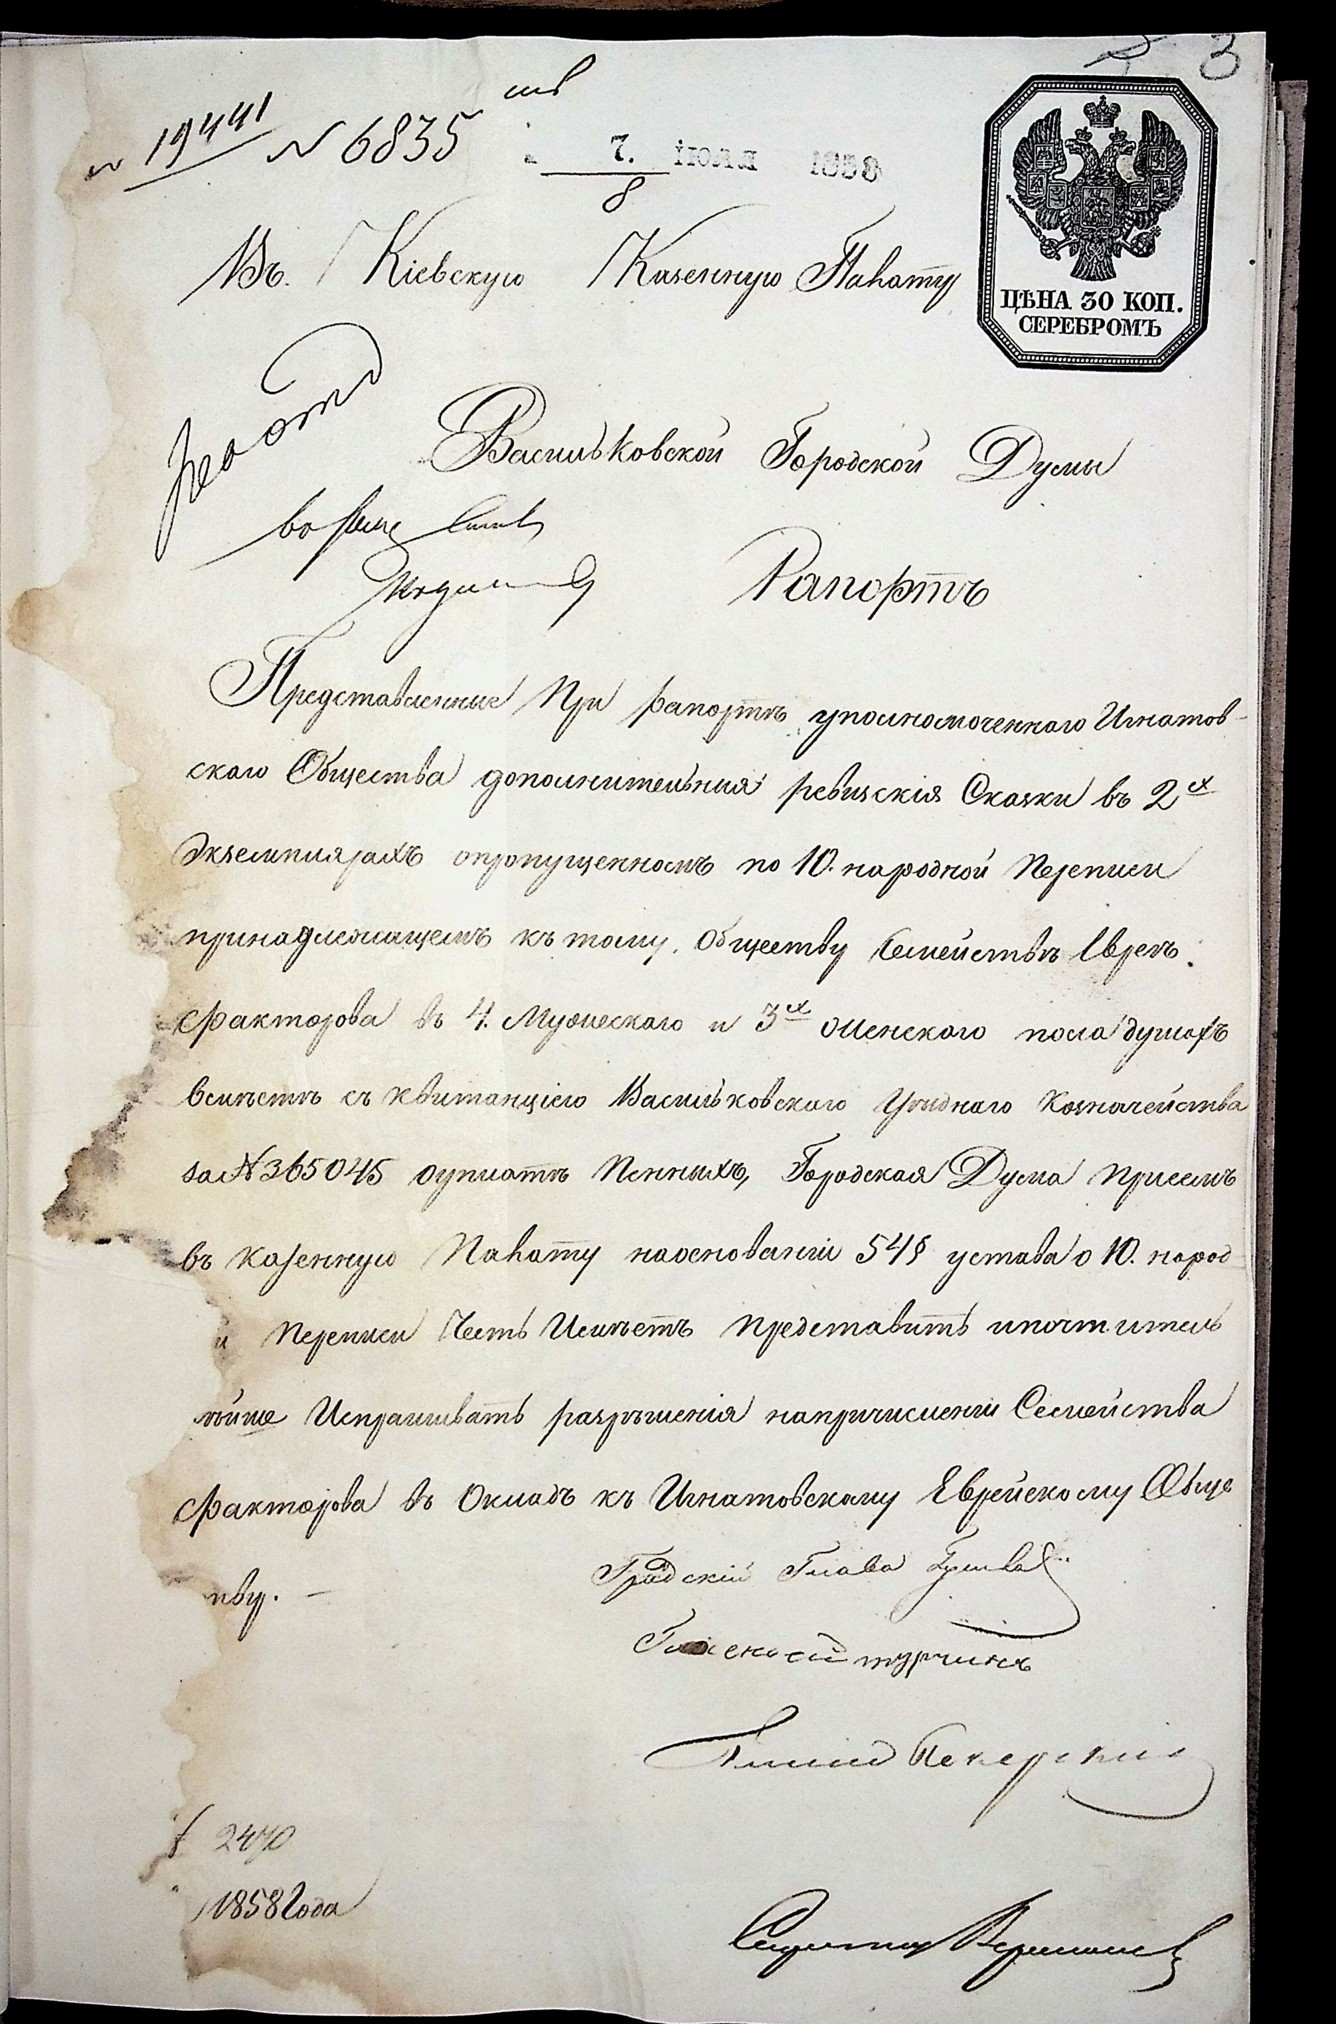 3
19441 № 6835
7. іюля 1858
8
Въ Кіевскую Казенную Палату
ЦѢНА 30 КОП.
СЕРЕБРОМЪ
Васильковской Городской Думы
Рапортъ
Представленные при рапортѣ уполномоченнаго Игнатов-
скаго Общества дополнительныя ревизскія Сказки въ 2х
экземплярахъ опропущенномъ по 10. народной Переписи
принадлежащемъ къ тому Обществу Семействѣ Еврея
Факторова въ 4. Мужескаго и 3х женскаго пола душахъ
вместѣ съ квитанціею Васильковскаго Уѣзднаго Казначейства
за № 365045 оуплатѣ Пенныхъ, Городская Дума при семъ
въ казенную Палату наоснованіи 54 § устава о 10. народ
й Переписи Честь Имѣетъ представить ипочтитель
нѣйше Испрашивать разрѣшенія напричисленіи Семейства
Факторова въ Окладъ къ Игнатовскому Еврейскому Обще
тву.
Градскій Глава
Гласный турчинъ
2470
1858 Года